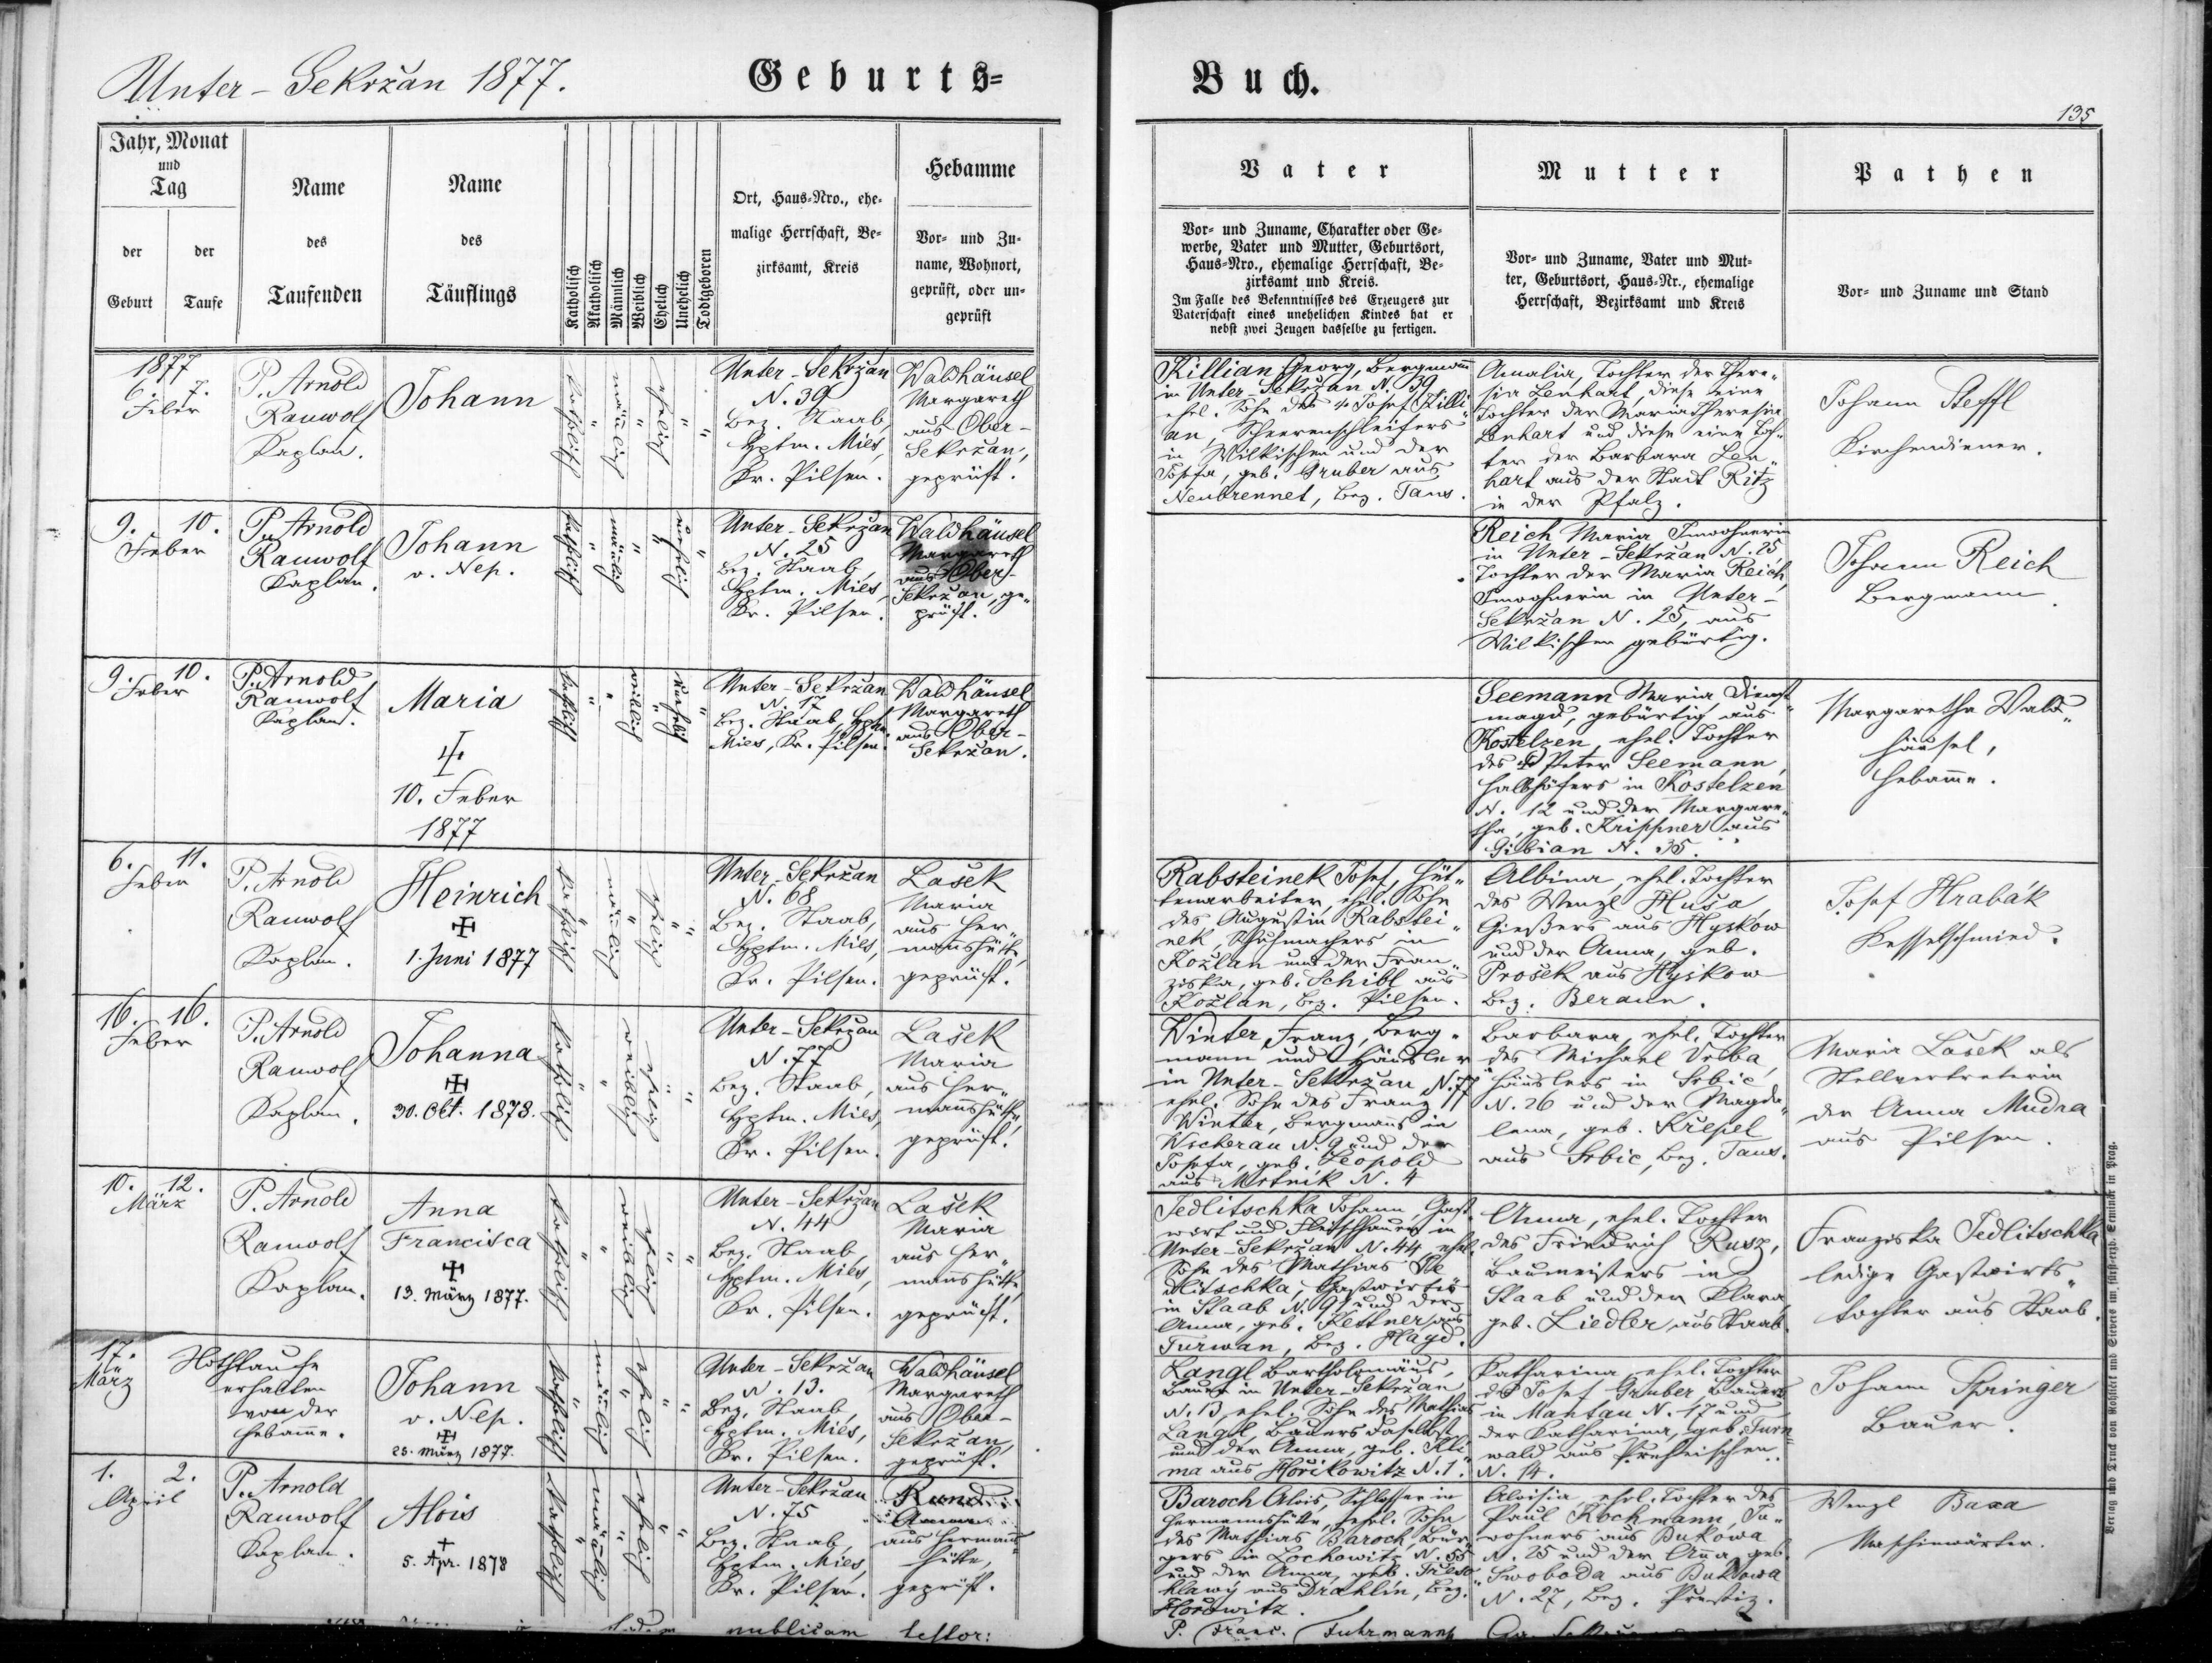 Unter-Sekržan 1877.
Geburts=
Buch.
135
Jahr, Monat
und
Tag
der
Geburt
der
Taufe
Name
des
Taufenden
Name
des
Täuflings
Katholisch
Akatholisch
Männlich
Weiblich
Ehelich
Unehelich
Todtgeboren
Ort, Haus-Nro., ehe-
malige Herrschaft, Be-
zirksamt, Kreis
Hebamme
Vor- und Zu-
name, Wohnort,
geprüft, oder un-
geprüft
Vater
Vor- und Zuname, Charakter oder Ge-
werbe, Vater und Mutter, Geburtsort,
Haus-Nro., ehemalige Herrschaft, Be-
zirksamt und Kreis.
Im Falle des Bekenntnisses des Erzeugers zur
Vaterschaft eines unehelichen Kindes hat er
nebst zwei Zeugen dasselbe zu fertigen.
Mutter
Vor- und Zuname, Vater und Mut-
ter, Geburtsort, Haus-Nr., ehemalige
Herrschaft, Bezirksamt und Kreis
Pathen
Vor- und Zuname und Stand
1877
6. 7.
Feber
P. Arnold
Rauwolf
Kaplan.
Johann
katholisch
"
mänlich
"
ehelich
"
"
Unter-Sekržan
N. 39
Bez. Staab,
Hptm. Mies,
Kr. Pilsen.
Waldhäusel
Margareth
aus Ober-
Sekržan,
geprüft.
Killian Georg, Bergmann
in Unter-Sekržan N. 39
ehel. Sohn des + Josef Killi-
an, Scherenschleifers
in Wilkischen und der
Josefa, geb. Gruber aus
Neubrennet, Bez. Taus.
Amalia, Tochter der There-
sia Lenhart, diese eine
Tochter der Maria Theresia
Lenhart und diese eine Toch-
ter der Barbara Len-
hart aus der Stadt Ritz
in der Pfalz.
Johann Steffl
Kirchendiener.
9. 10.
Feber
P. Arnold
Rauwolf
Kaplan.
Johann
v. Nep.
katholisch
"
mänlich
"
"
unehelich
"
Unter-Sekržan
N. 25
Bez. Staab,
Hptm. Mies,
Kr. Pilsen.
Waldhäusel
Margareth
aus Ober-
Sekržan, ge-
prüft.
Reich Maria Inwohnerin
in Unter-Sekržan N. 25,
Tochter der Maria Reich,
Inwohnerin in Unter-
Sekržan N. 25, aus
Wilkischen gebürtig.
Johann Reich
Bergmann.
9. 10.
Feber
P. Arnold
Rauwolf
Kaplan.
Maria
+
10. Feber
1877
katholisch
"
"
weiblich
"
unehelich
"
Unter-Sekržan
N. 17
Bez. Staab, Hptm.
Mies, Kr. Pilsen.
Waldhäusel
Margareth
aus Ober-
Sekržan.
Seemann Maria Dienst-
magd, gebürtig aus
Kostelzen, ehel. Tochter
des + Peter Seemann,
Halbhöfers in Kostelzen
N. 12 und der Margare-
tha, geb. Krippner aus
Gibian N. 35.
Margaretha Wald-
häusel,
Hebamme.
6. 11.
Feber
P. Arnold
Rauwolf
Kaplan.
Heinrich
+
1. Juni 1877
katholisch
"
mänlich
"
ehelich
"
"
Unter-Sekržan
N. 68
Bez. Staab,
Hptm. Mies,
Kr. Pilsen.
Lašek
Maria
aus Her-
mannshütte,
geprüft.
Rabsteinek Josef, Hüt-
tenarbeiter, ehel. Sohn
des Augustin Rabstei-
nek, Schuhmachers in
Kožlan und der Fran-
ziska, geb. Schibl aus
Kožlan, Bez. Pilsen.
Albina, ehel. Tochter
des Wenzl Husa,
Gießers aus Hyskow
und der Anna, geb.
Prošek aus Hyskow
Bez. Beraun.
Josef Hrabák
Kesselschmied.
16. 16.
Feber
P. Arnold
Rauwolf
Kaplan.
Johanna
+
30. Okt. 1878.
katholisch
"
"
weiblich
ehelich
"
"
Unter-Sekržan
N. 77
Bez. Staab,
Hptm. Mies,
Kr. Pilsen.
Lašek
Maria
aus Her-
mannshütte,
geprüft.
Winter Franz, Berg-
mann und Häusler
in Unter-Sekržan N. 77
ehel. Sohn des Franz
Winter, Bergmanns in
Wscherau N. 9 und der
Josefa, geb. Leopold
aus Mrtnik N. 4
Barbara, ehel. Tochter
des Michael Vrba,
Häuslers in Srbic
N. 26 und der Magda-
lena, geb. Křepel
aus Srbic, Bez. Taus.
Maria Lašek als
Stellvertreterin
der Anna Mudra
aus Pilsen.
10. 12.
März
P. Arnold
Rauwolf
Kaplan.
Anna
Francisca
+
13. März 1877.
katholisch
"
"
weiblich
ehelich
"
"
Unter-Sekržan
N. 44
Bez. Staab,
Hptm. Mies,
Kr. Pilsen.
Lašek
Maria
aus Her-
mannshütte,
geprüft.
Jedlitschka Johann, Gast-
wirt und Fleischhauer in
Unter-Sekržan N. 44, ehel.
Sohn des Mathias Je-
dlitschka, Gastwirtes
in Staab N. 9 und der
Anna, geb. Kettner aus
Turwan, Bez. Hayd.
Anna, ehel. Tochter
des Friedrich Rusz,
Baumeisters in
Staab und der Klara,
geb. Liedler aus Staab.
Franziska Jedlitschka
ledige Gastwirts-
tochter aus Staab.
17.
März
Nothtaufe
erhalten
von der
Hebamme.
Johann
v. Nep.
+
25. März 1877.
katholisch
"
mänlich
"
ehelich
"
"
Unter-Sekržan
N. 13.
Bez. Staab,
Hptm. Mies,
Kr. Pilsen.
Waldhäusel
Margareth
aus Ober-
Sekržan,
geprüft.
Langl Bartholomäus,
Bauer in Unter-Sekržan
N. 13, ehel. Sohn des Mathias
Langl, Bauers daselbst
und der Anna, geb. Kli-
ma aus Horikowitz N. 1.
Katharina, ehel. Tochter
des Josef Gruber, Bauers
in Mantau N. 17 und
der Katharina, geb. Turn-
wald aus Preheischen
N. 14.
Johann Springer
Bauer.
1. 2.
April
P. Arnold
Rauwolf
Kaplan.
Alois
+
5. Apr. 1878
katholisch
"
mänlich
"
ehelich
"
"
Unter-Sekržan
N. 75
Bez. Staab,
Hptm. Mies,
Kr. Pilsen.
Rund
Anna
aus Hermanns-
hütte,
geprüft.
Baroch Alois, Schlosser in
Hermannshütte, ehel. Sohn
des Mathias Baroch, Bür-
gers in Lochowitz N. 55
und der Anna, geb.
aus Drahlín, Bez.
Hořowitz.
Aloisia, ehel. Tochter des
Paul Kochmann, In-
wohners aus Bukowa
N. 25 und der Anna, geb.
Swoboda aus Bukowa
N. 27, Bez. Prestiz.
Wenzl Baxa
Maschinwärter.
publicam testor:
P. Franc. Fuhrmann
Verlag und Druck von Rohliček und Sievers im fürst-erzb. Seminar in Prag.